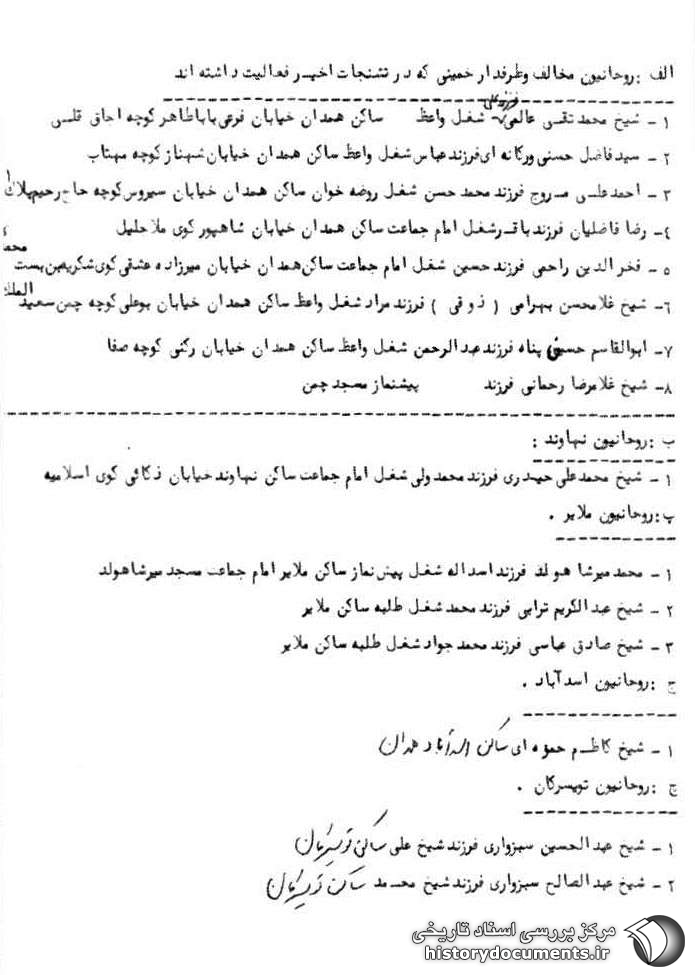 الف : روحانیون مخالف وطرفدار خمینی که در تشنجات اخیر فعالیت داشته اند
۱ - شیخ محمد تقی عالمی فرزند علی شغل واعظ ساکن همدان خیابان فرعی باباطاهر کوچه اجاق قلسی
۲ - سیدفاضل حسنی ورکانه ای فرزند عباس شغل واعظ ساکن همدان خیابان شهناز کوچه مهتاب
۳ - احمدعلی مروج فرزند محمد حسن شغل روضه خوان ساکن همدان خیابان سیروس کوچه حاج رحیم پلاک ۱
٤ - رضا فاضلیان فرزند باقر شغل امام جماعت ساکن همدان خیابان شاهپور کوی ملاجلیل
۵ - فخرالدین راحمی فرزند حسین شغل امام جماعت ساکن همدان خیابان میرزاده عشقی کوی شکریه بن بست
۶ - شیخ غلامحسن بهرامی ( ذوقی ) فرزند مراد شغل واعظ ساکن همدان خیابان بوعلی کوچه چمن سعید الملک
۷ - ابوالقاسم حسینی پناه فرزند عبدالرحمن شغل واعظ ساکن همدان خیابان رکنی کوچه صفا
۸ - شیخ غلامرضا رحمانی فرزند پیشنماز مسجد چمن
ب : روحانیون نهاوند :
۱ - شیخ محمدعلی حیدری فرزند محمدولی شغل امام جماعت ساکن نهاوند خیابان ذکائی کوی اسلامیه
پ : روحانیون ملایر .
۱ - محمد میرشاهولد فرزند اسداله شغل پیش نماز ساکن ملایر امام جماعت مسجد میرشاهولد
۲ - شیخ عبدالکریم ترابی فرزند محمد شغل طلبه ساکن ملایر
۳ - شیخ صادق عباسی فرزند محمد جواد شغل طلبه ساکن ملایر
ج : روحانیون اسدآباد .
۱ - شیخ کاظم حمزه ای ساکن اسدآباد همدان
چ : روحانیون تویسرکان .
۱ - شیخ عبدالحسین سبزواری فرزند شیخ علی ساکن تویسرکان
۲ - شیخ عبدالصالح سبزواری فرزند شیخ محمد ساکن تویسرکان
مرکز بررسی اسناد تاریخی
historydocuments.ir